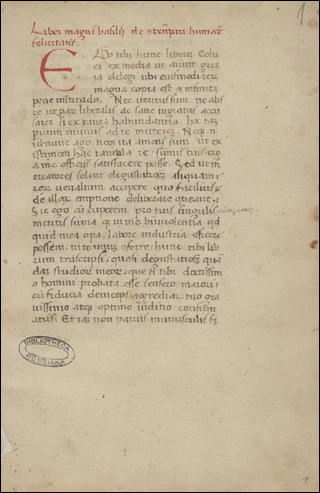 Liber magni basilii de contemptu humane
felicitatis
Ego tibi hunc librum Colu
ci ex media ut aiunt Grecia
delegi ubi eiusmodi rerum
magna copia est et infinita
pene multitudo. Nec veritus sum ne abs
te ut parum liberalis ac sane ingratus accu
sarer si ex tanta habundantia hoc tam
parvum munus ad te mitterem. Neque
id nunc ago nec ita amens sum ut
existimem hac
me officiis satisfacere posse. Sed ut
mercatores solent degustationem aliquam
rerum venalium accipere quo facilius
de illarum emptione deliberare queant.
Sic ego cum cuperem pro tuis singulis
meritis summa qua in me benivolentia
quid mea opera, labore industria efficere
possem, hunc tibi li
brum transcripsi, quasi degustationem quan
dam studiorum meorum, que si tibi doctissimo
homini probata esse sensero, maiori
cum fiducia deinceps accedam, tuo gra
vissimo atque optimo iuditio confirm
atus. Et tam parvi munusculi
BIBLIOTHECA
ROSSIANA
1